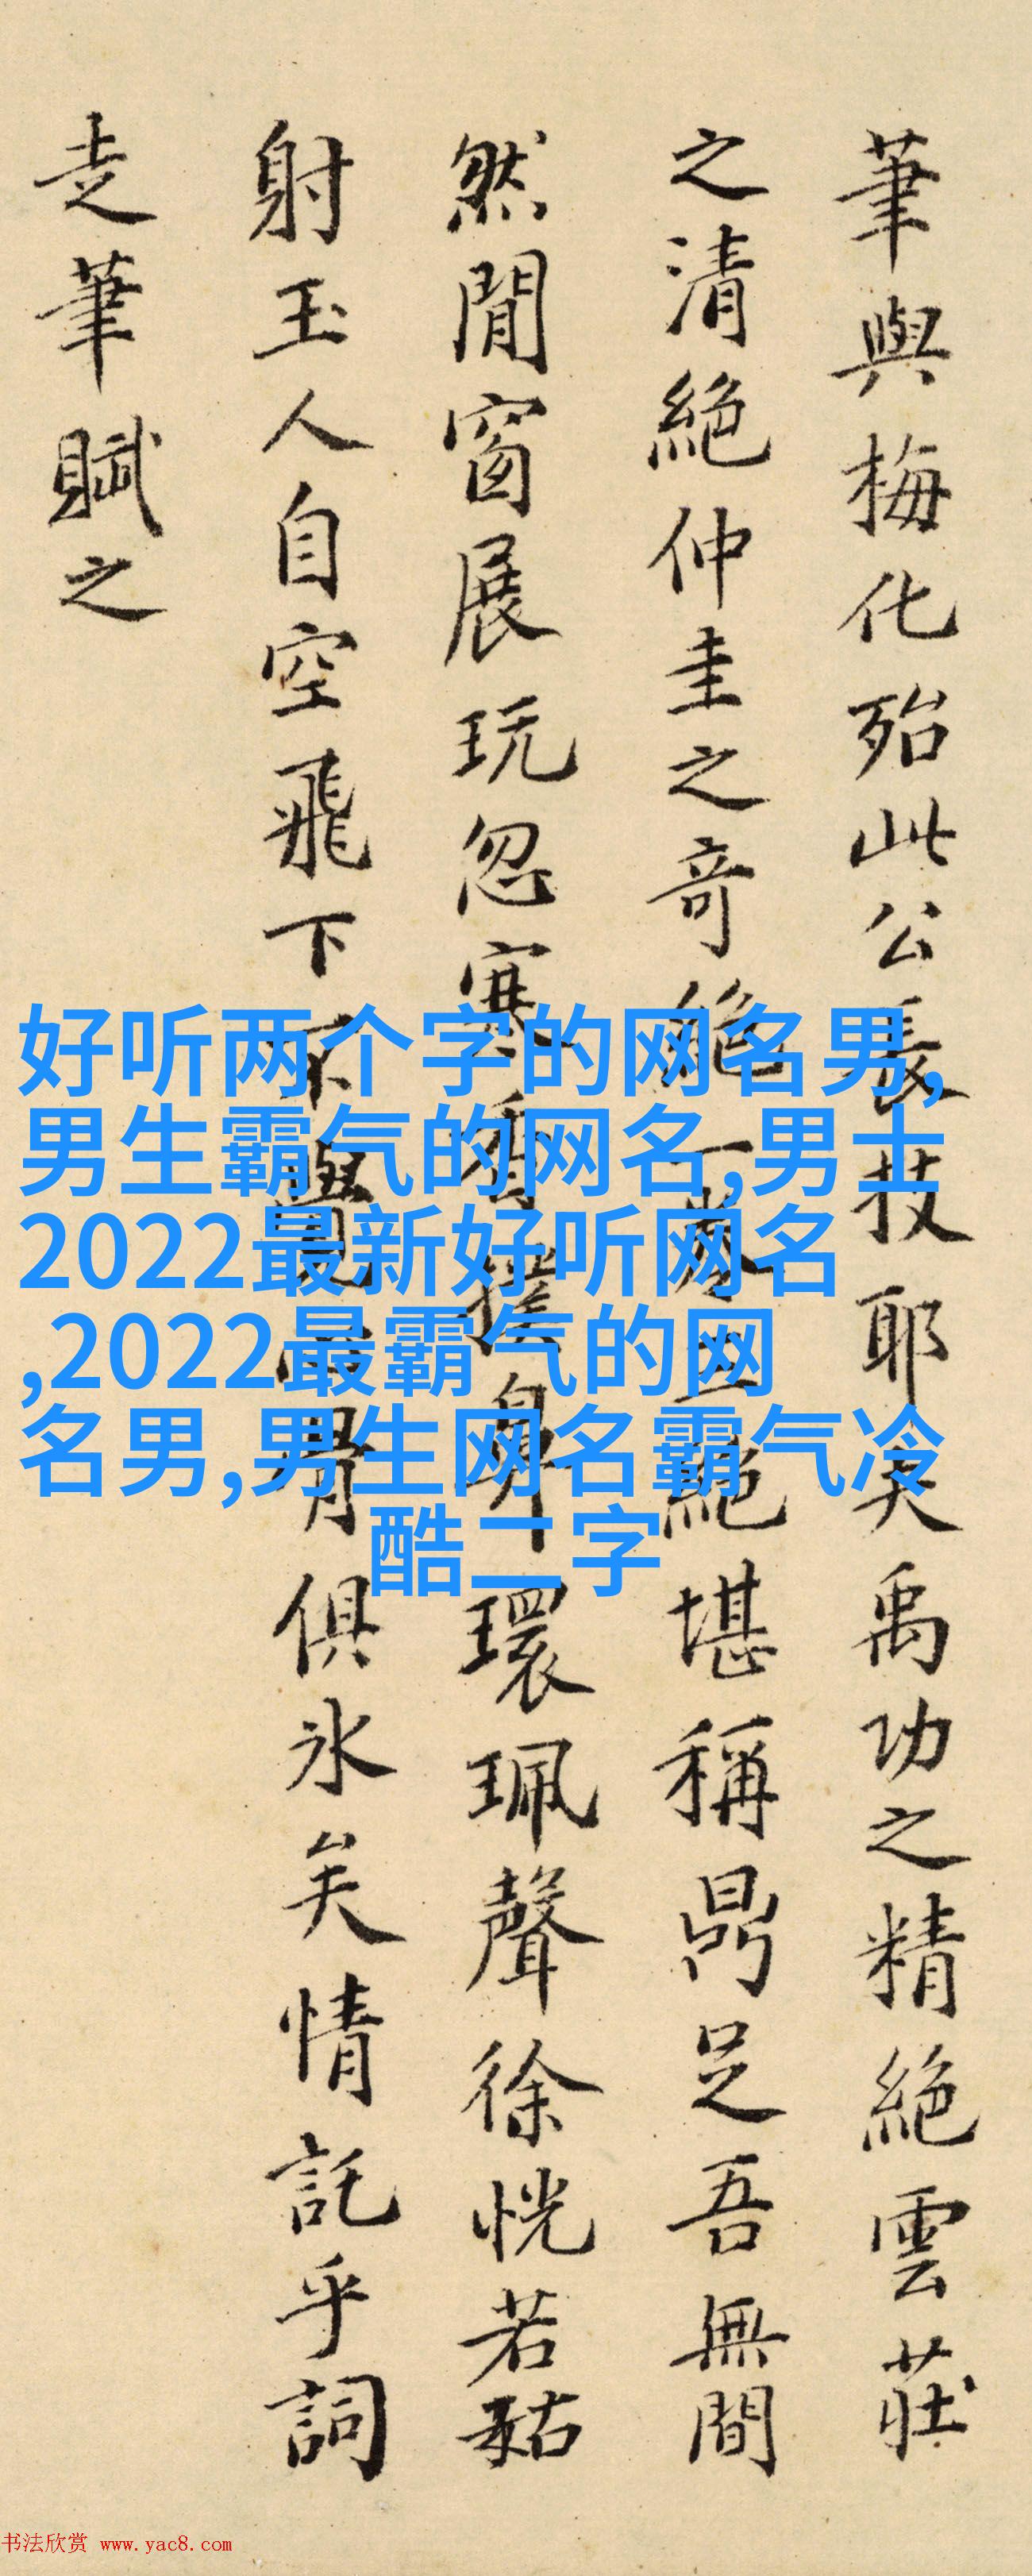 筆與梅化殆此公長技耶矣禹功之精絶雲莊
之清絶仲圭之奇絶一卷三絶堪稱鼎足吾無間
然閒窗展玩忽寒香撲鼻環珮聲徐恍若
射玉人自空飛下不覺心骨俱冰矣情託乎詞
走筆賦之
好听两个字的网名男,
男生霸气的网名,男士
2022最新好听网名
,2022最霸气的网
名男,男生网名霸气冷
酷二字
书法欣赏 www.yac8.com